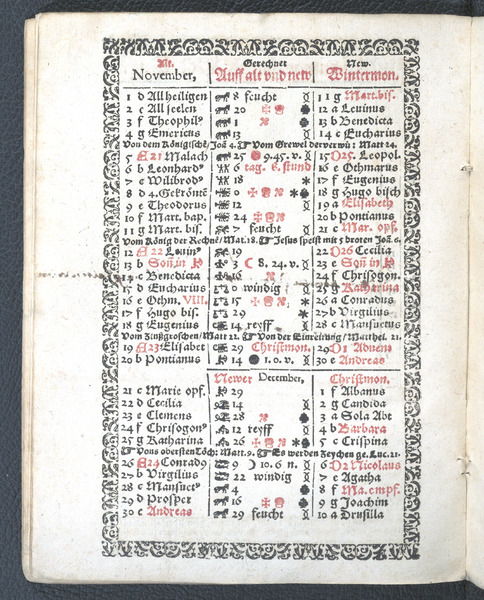 Alt. Gerechnet New.
November, Auff alt vnd new Wintermon.
1 d Allheiligen 8 feucht 11 g Mart. bis.
2 e Allseelen 20 12 a Leuinus
3 f Theophil⁹ 1 13 b Benedicta
4 g Emericus 13 14 c Eucharius
Von dem Königischē, Joā 4. Vom Grewel der verwü: Matt 24.
5 A 21 Malach 25 9.45. v. 15 D25. Leopol.
6 b Leonhard⁹ 6 tag. 6. stund 16 e Othmarus
7 c Wilibrod⁹ 18 17 f Eugenius
8 d 4. Gekrönte 0 18 g Hugo bisch
9 e Theodorus 12 19 a Elisabeth
10 f Mart. bap. 24 20 b Pontianus
11 g Mart. bis. 7 21 c Mar. opf.
Vom König der Rechnū, Mat. 18. Jesus speist mit 5 broten Joā. 6.
12 A 22 Leuin⁹ 19 22 D26 Cecilia
13 b Soñ in 3 8. 24. v. 23 e Soñ in
14 c Benedicta 16 24 f Chrisogon.
15 d Eucharius 0 windig 25 g Katharina
16 e Othm. VIII. 15 26 a Conradus
17 f Hugo bis. 29 27 b Virgilius
18 g Eugenius 14 reyff 28 c Mansuetus
Vom Zinßgroschen, Matt 22. Von der Einreitung, Matthei. 21.
19 A 23 Elisabet 29 Christmon. 29 D1 Aduent
20 b Pontianus 14 1. 0. v. 30 e Andreas
Newer December, Christmon.
21 c Marie opf. 29 1 f Albanus
22 d Cecilia 14 2 g Candida
23 e Clemens 28 3 a Sola Abt
24 f Chrisogon⁹ 12 reyff 4 b Barbara
25 g Katharina 26 5 c Crispina
Vons obersten Töch: Matt. 9. Es werden Zeychen ge. Luc. 21.
26 A 24 Conrad⁹ 9 10. 6 n. 6 D2 Nicolaus
27 b Virgilius 22 windig 7 e Agatha
28 c Mansuet⁹ 4 8 f Ma. empf.
29 d Prosper 16 9 g Joachim
30 e Andreas 29 feucht 10 a Drusilla